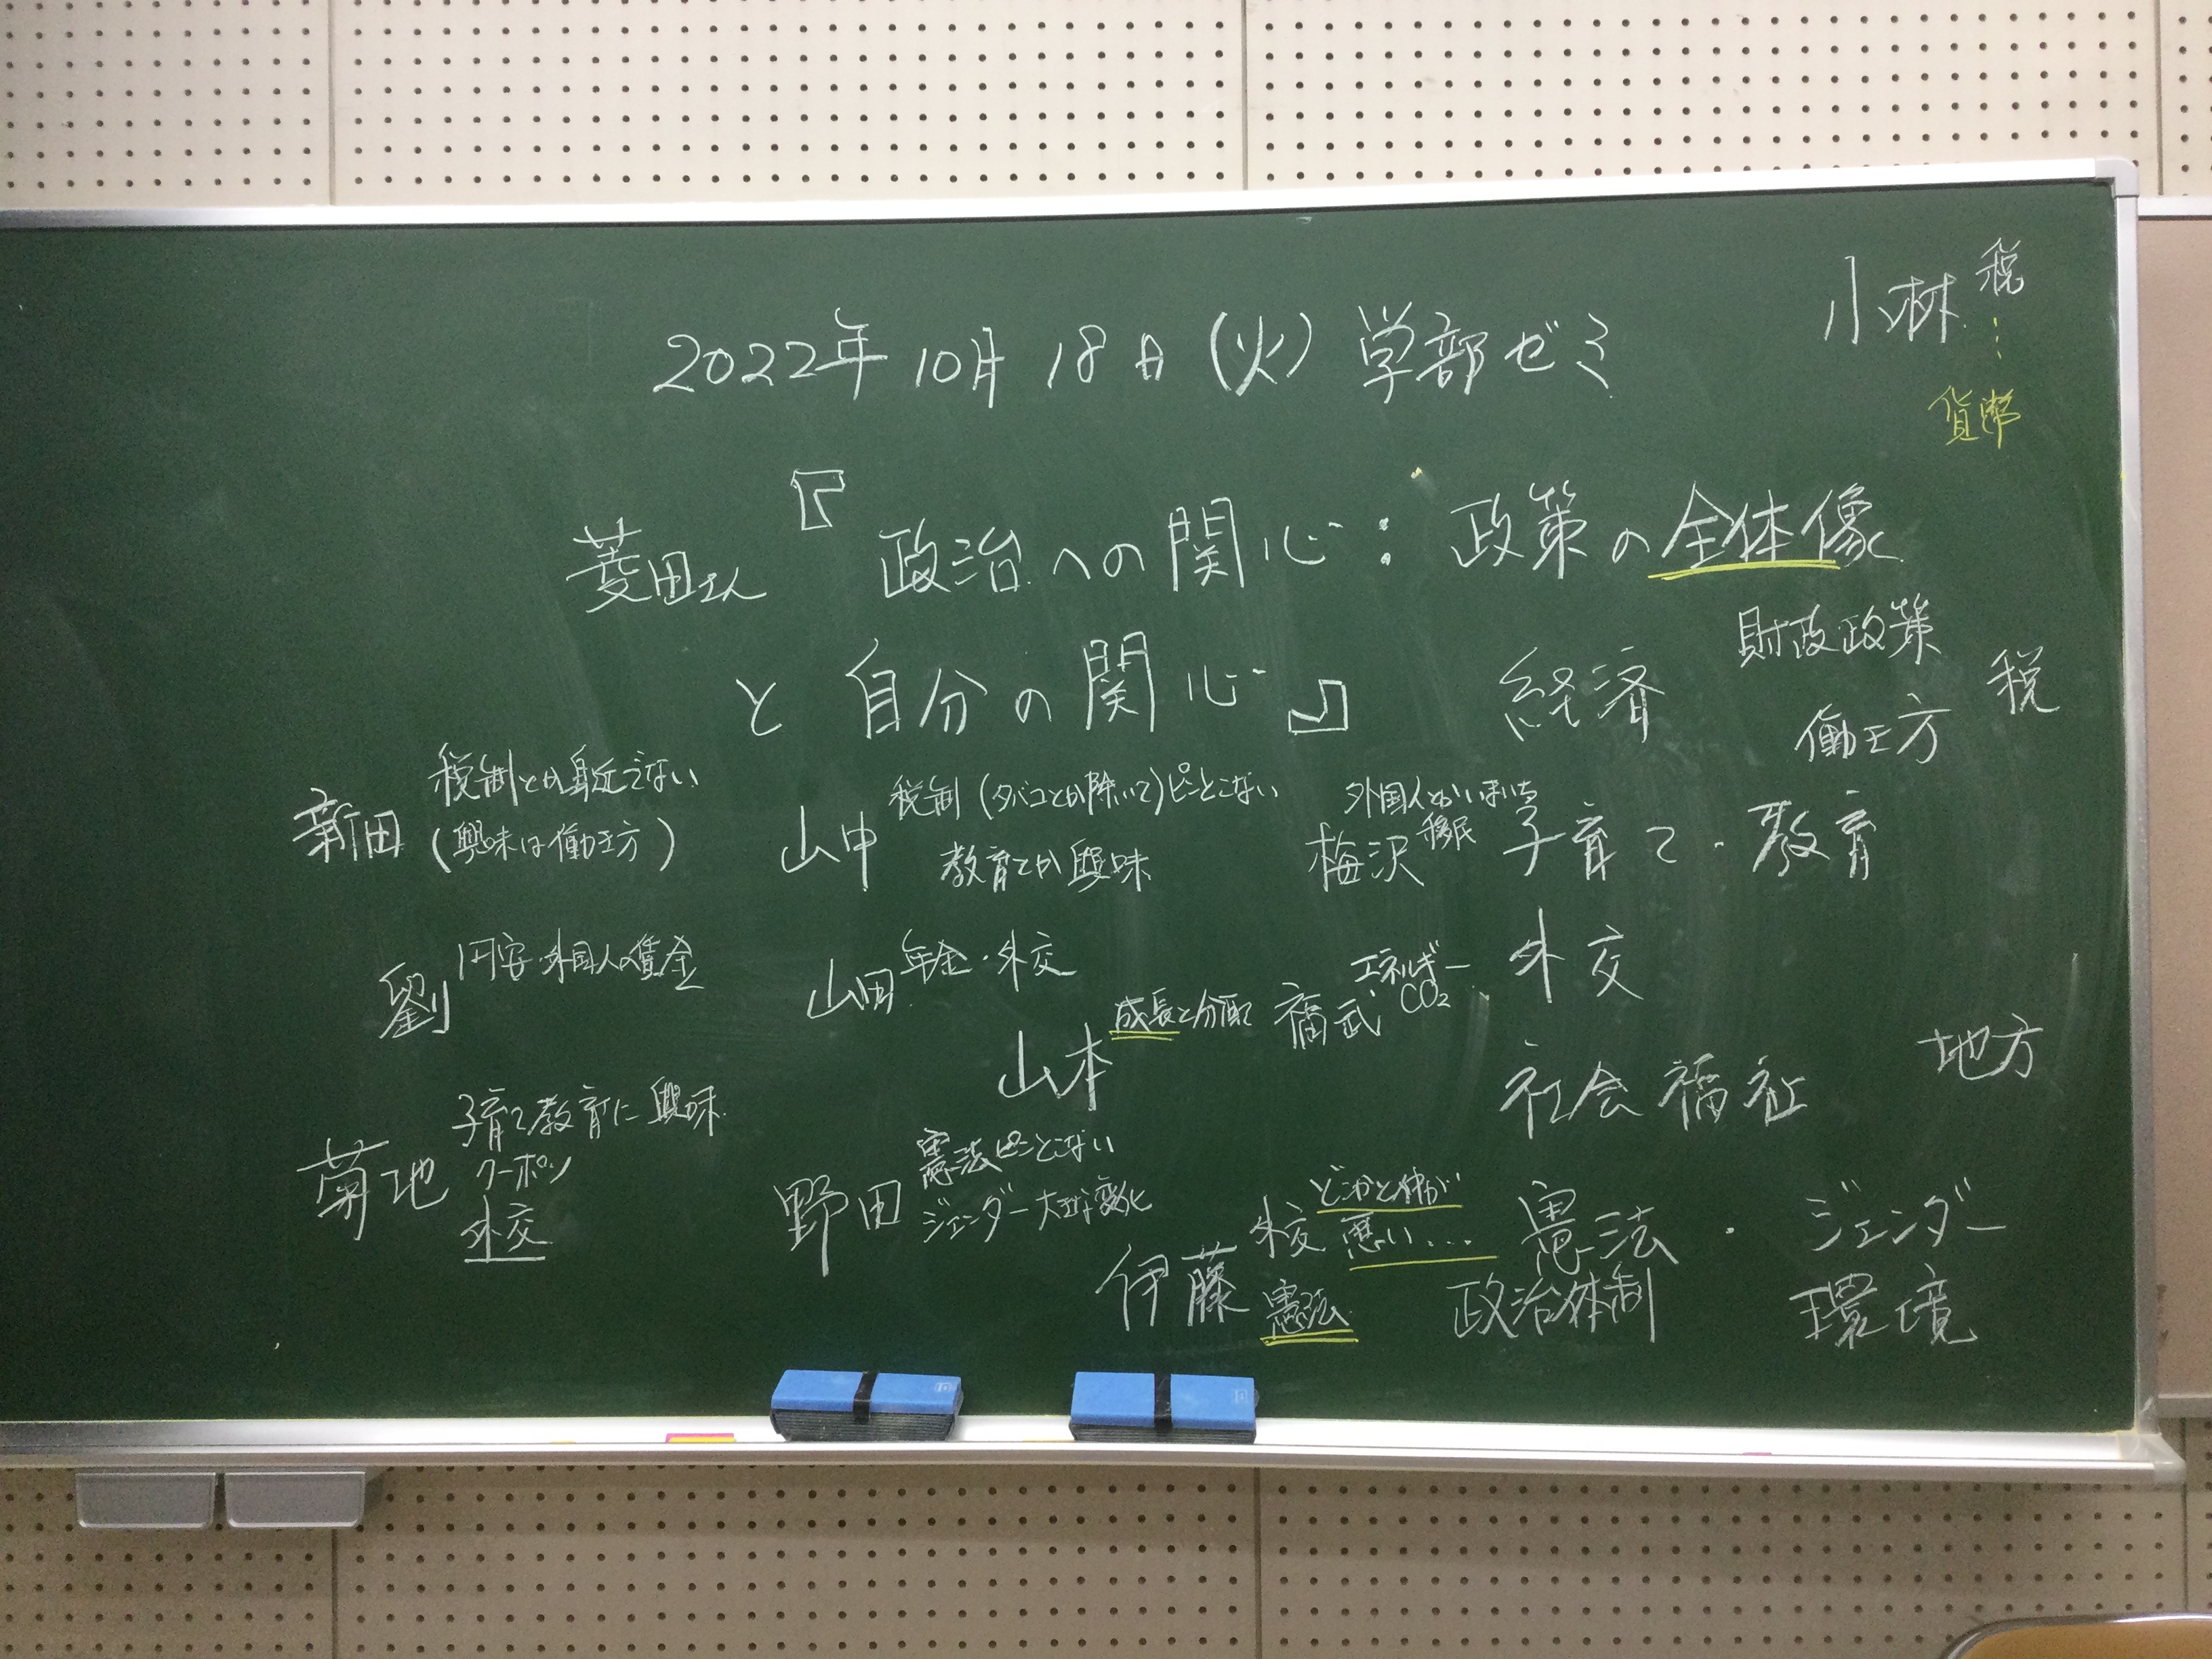 2022年10月18日(火)学部ゼミ
小林 税
⋮
貨幣
菱田さん『政治への関心:政策の全体像
と自分の関心』
経済
財政政策
働き方
税
新田
税制とか身近でない
(興味は働き方)
山中
税制(タバコとか除いて)ピンとこない
教育とか興味
梅沢
外国人とかいまいち
移民
子育て・教育
劉
円安・外国人の賃金
山田
年金・外交
山本
成長と分配
福武
エネルギー
CO2
外交
社会福祉
地方
菊地
子育て教育に興味
クーポン
外交
野田
憲法ピンとこない
ジェンダー大きな変化
伊藤
外交 どことか仲が
悪い…
憲法
憲法・ジェンダー
政治体制
環境